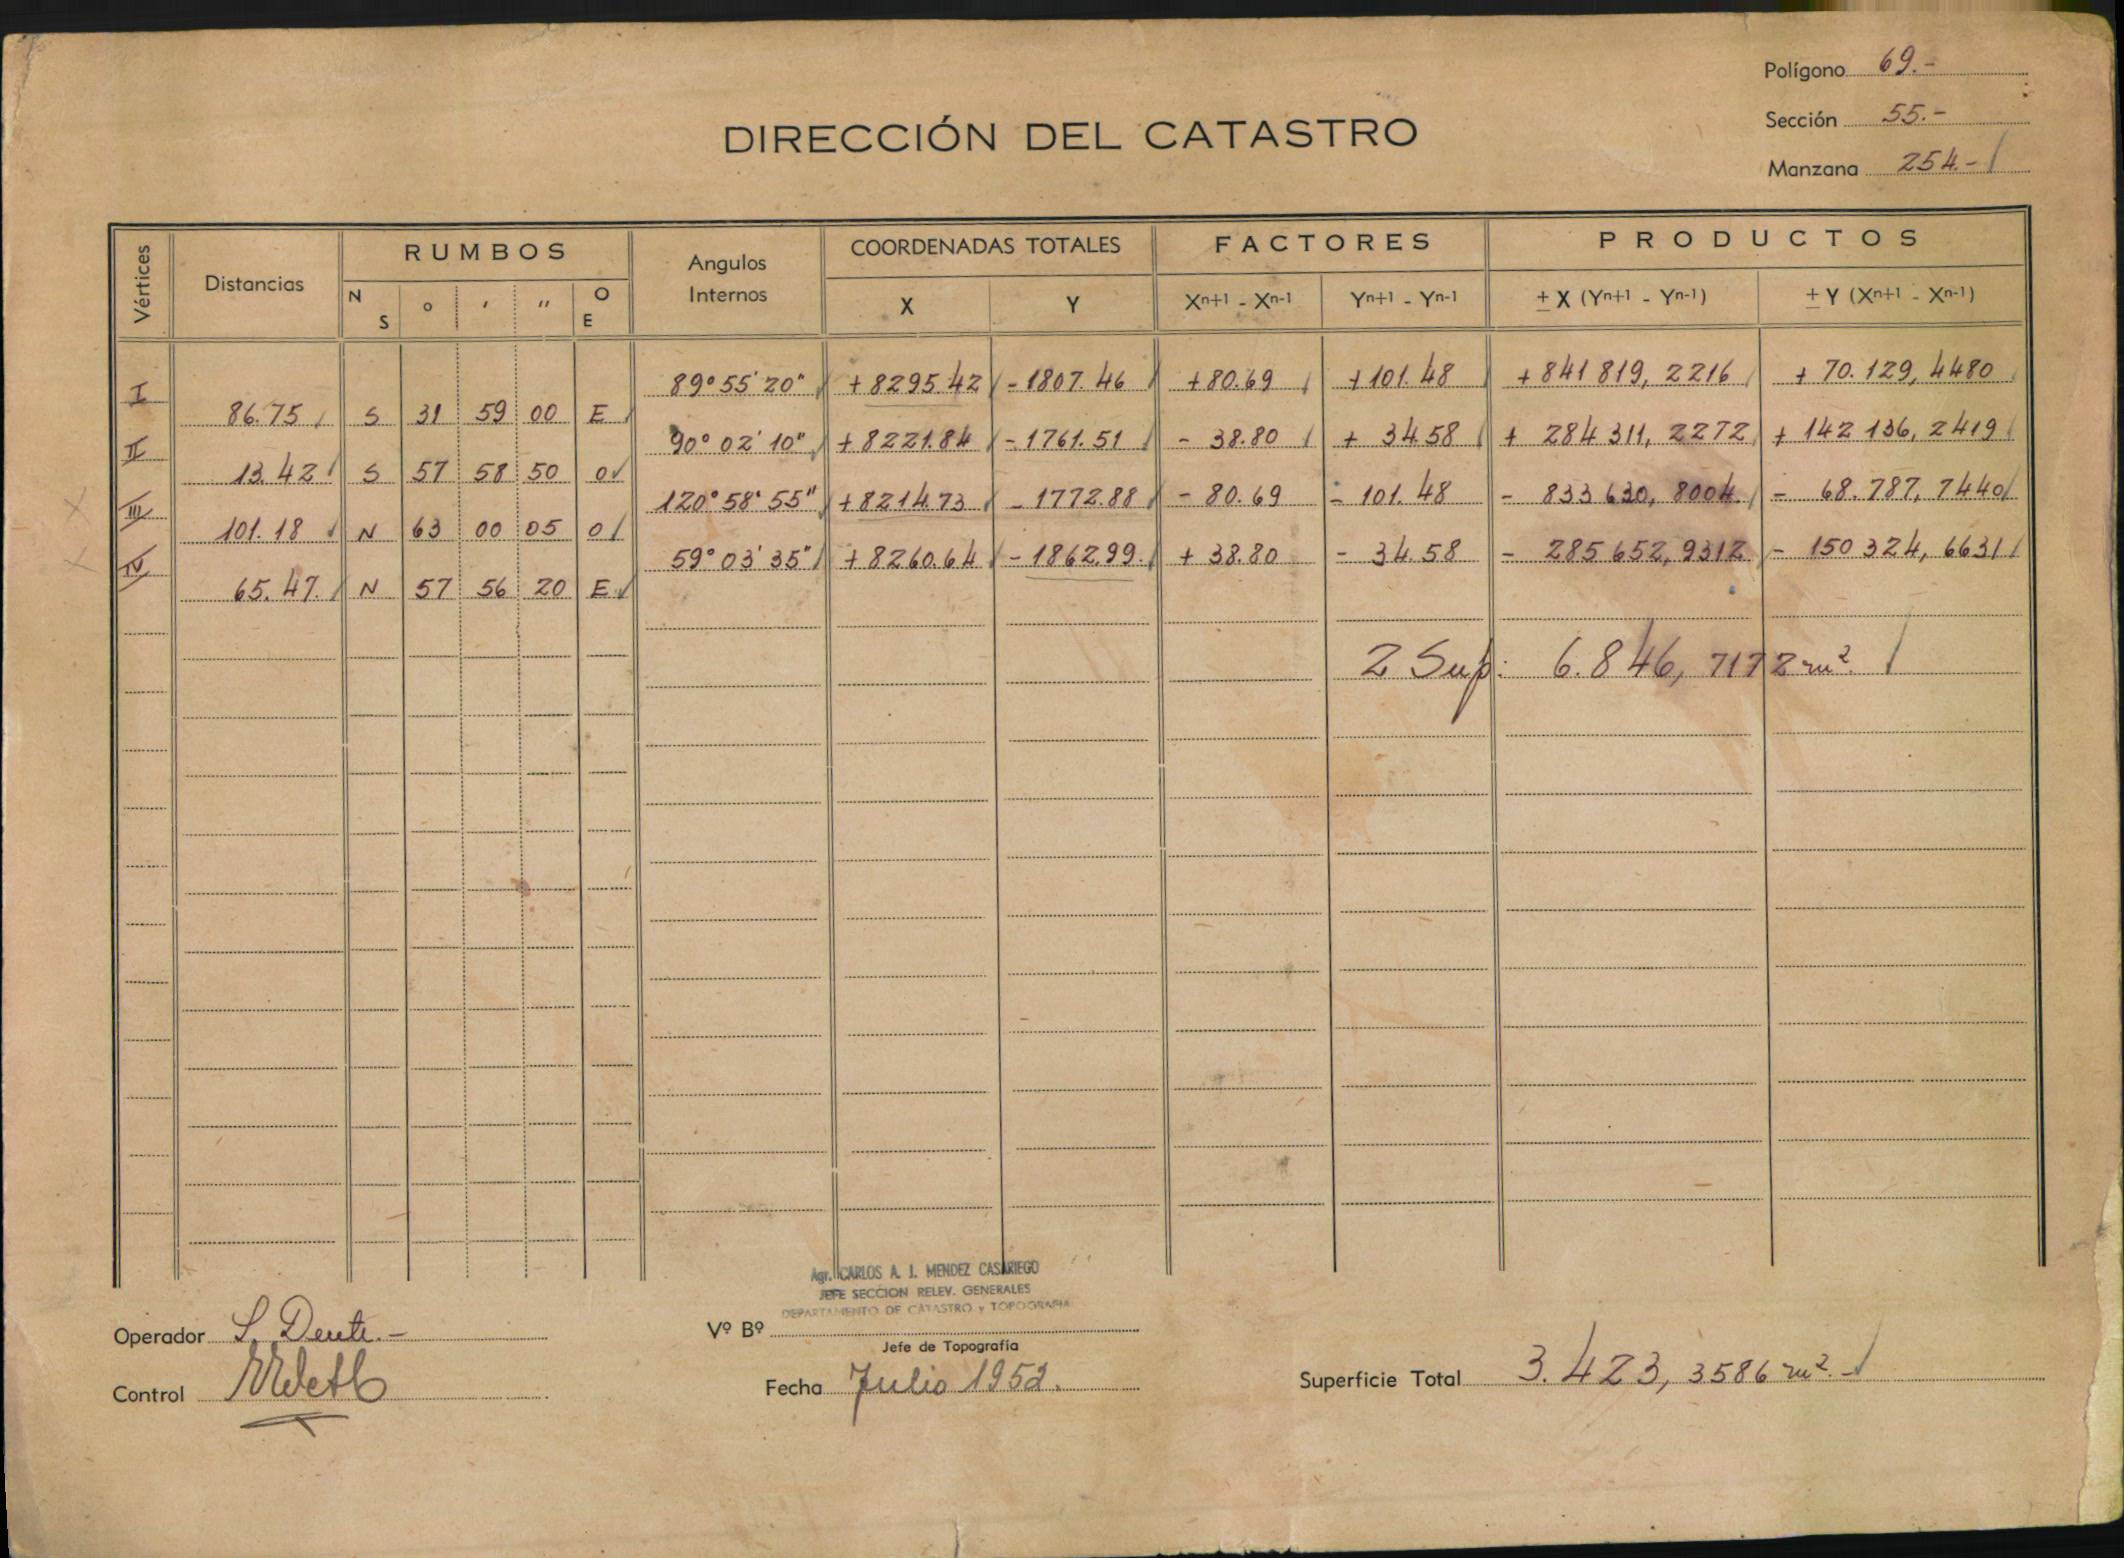 Polígono 69.-
Sección 55.-
Manzana 254.-
DIRECCIÓN DEL CATASTRO
Vértices Distancias RUMBOS Angulos Internos COORDENADAS TOTALES FACTORES PRODUCTOS
N S ° ' " O E X Y Xn+1 - Xn-1 Yn+1 - Yn-1 ± X (Yn+1 - Yn-1) ± Y (Xn+1 - Xn-1)
I 89° 55' 20" +8295.42 -1807.46 +80.69 +101.48 +841 819, 2216 + 70.129, 4480
86.75 S 31 59 00 E
II 90° 02' 10" +8221.84 -1761.51 - 38.80 + 34.58 + 284 311, 2272 + 142 136, 2419
13.42 S 57 58 50 O
III 120° 58' 55" +8214.73 -1772.88 - 80.69 - 101.48 - 833 630, 8004 - 68.787, 7440
101.18 N 63 00 05 O
IV 59° 03' 35" +8260.64 -1862.99 + 38.80 - 34.58 - 285 652, 9312 - 150 324, 6631
65.47 N 57 56 20 E
2 Sup: 6.846, 7172 m².
Agr. CARLOS A. J. MENDEZ CASARIEGO
JEFE SECCION RELEV. GENERALES
DEPARTAMENTO DE CATASTRO y TOPOGRAFIA
Operador S. Dente.-
Vº Bº
Jefe de Topografía
Control
Fecha Julio 1952.
Superficie Total 3.423, 3586 m².-